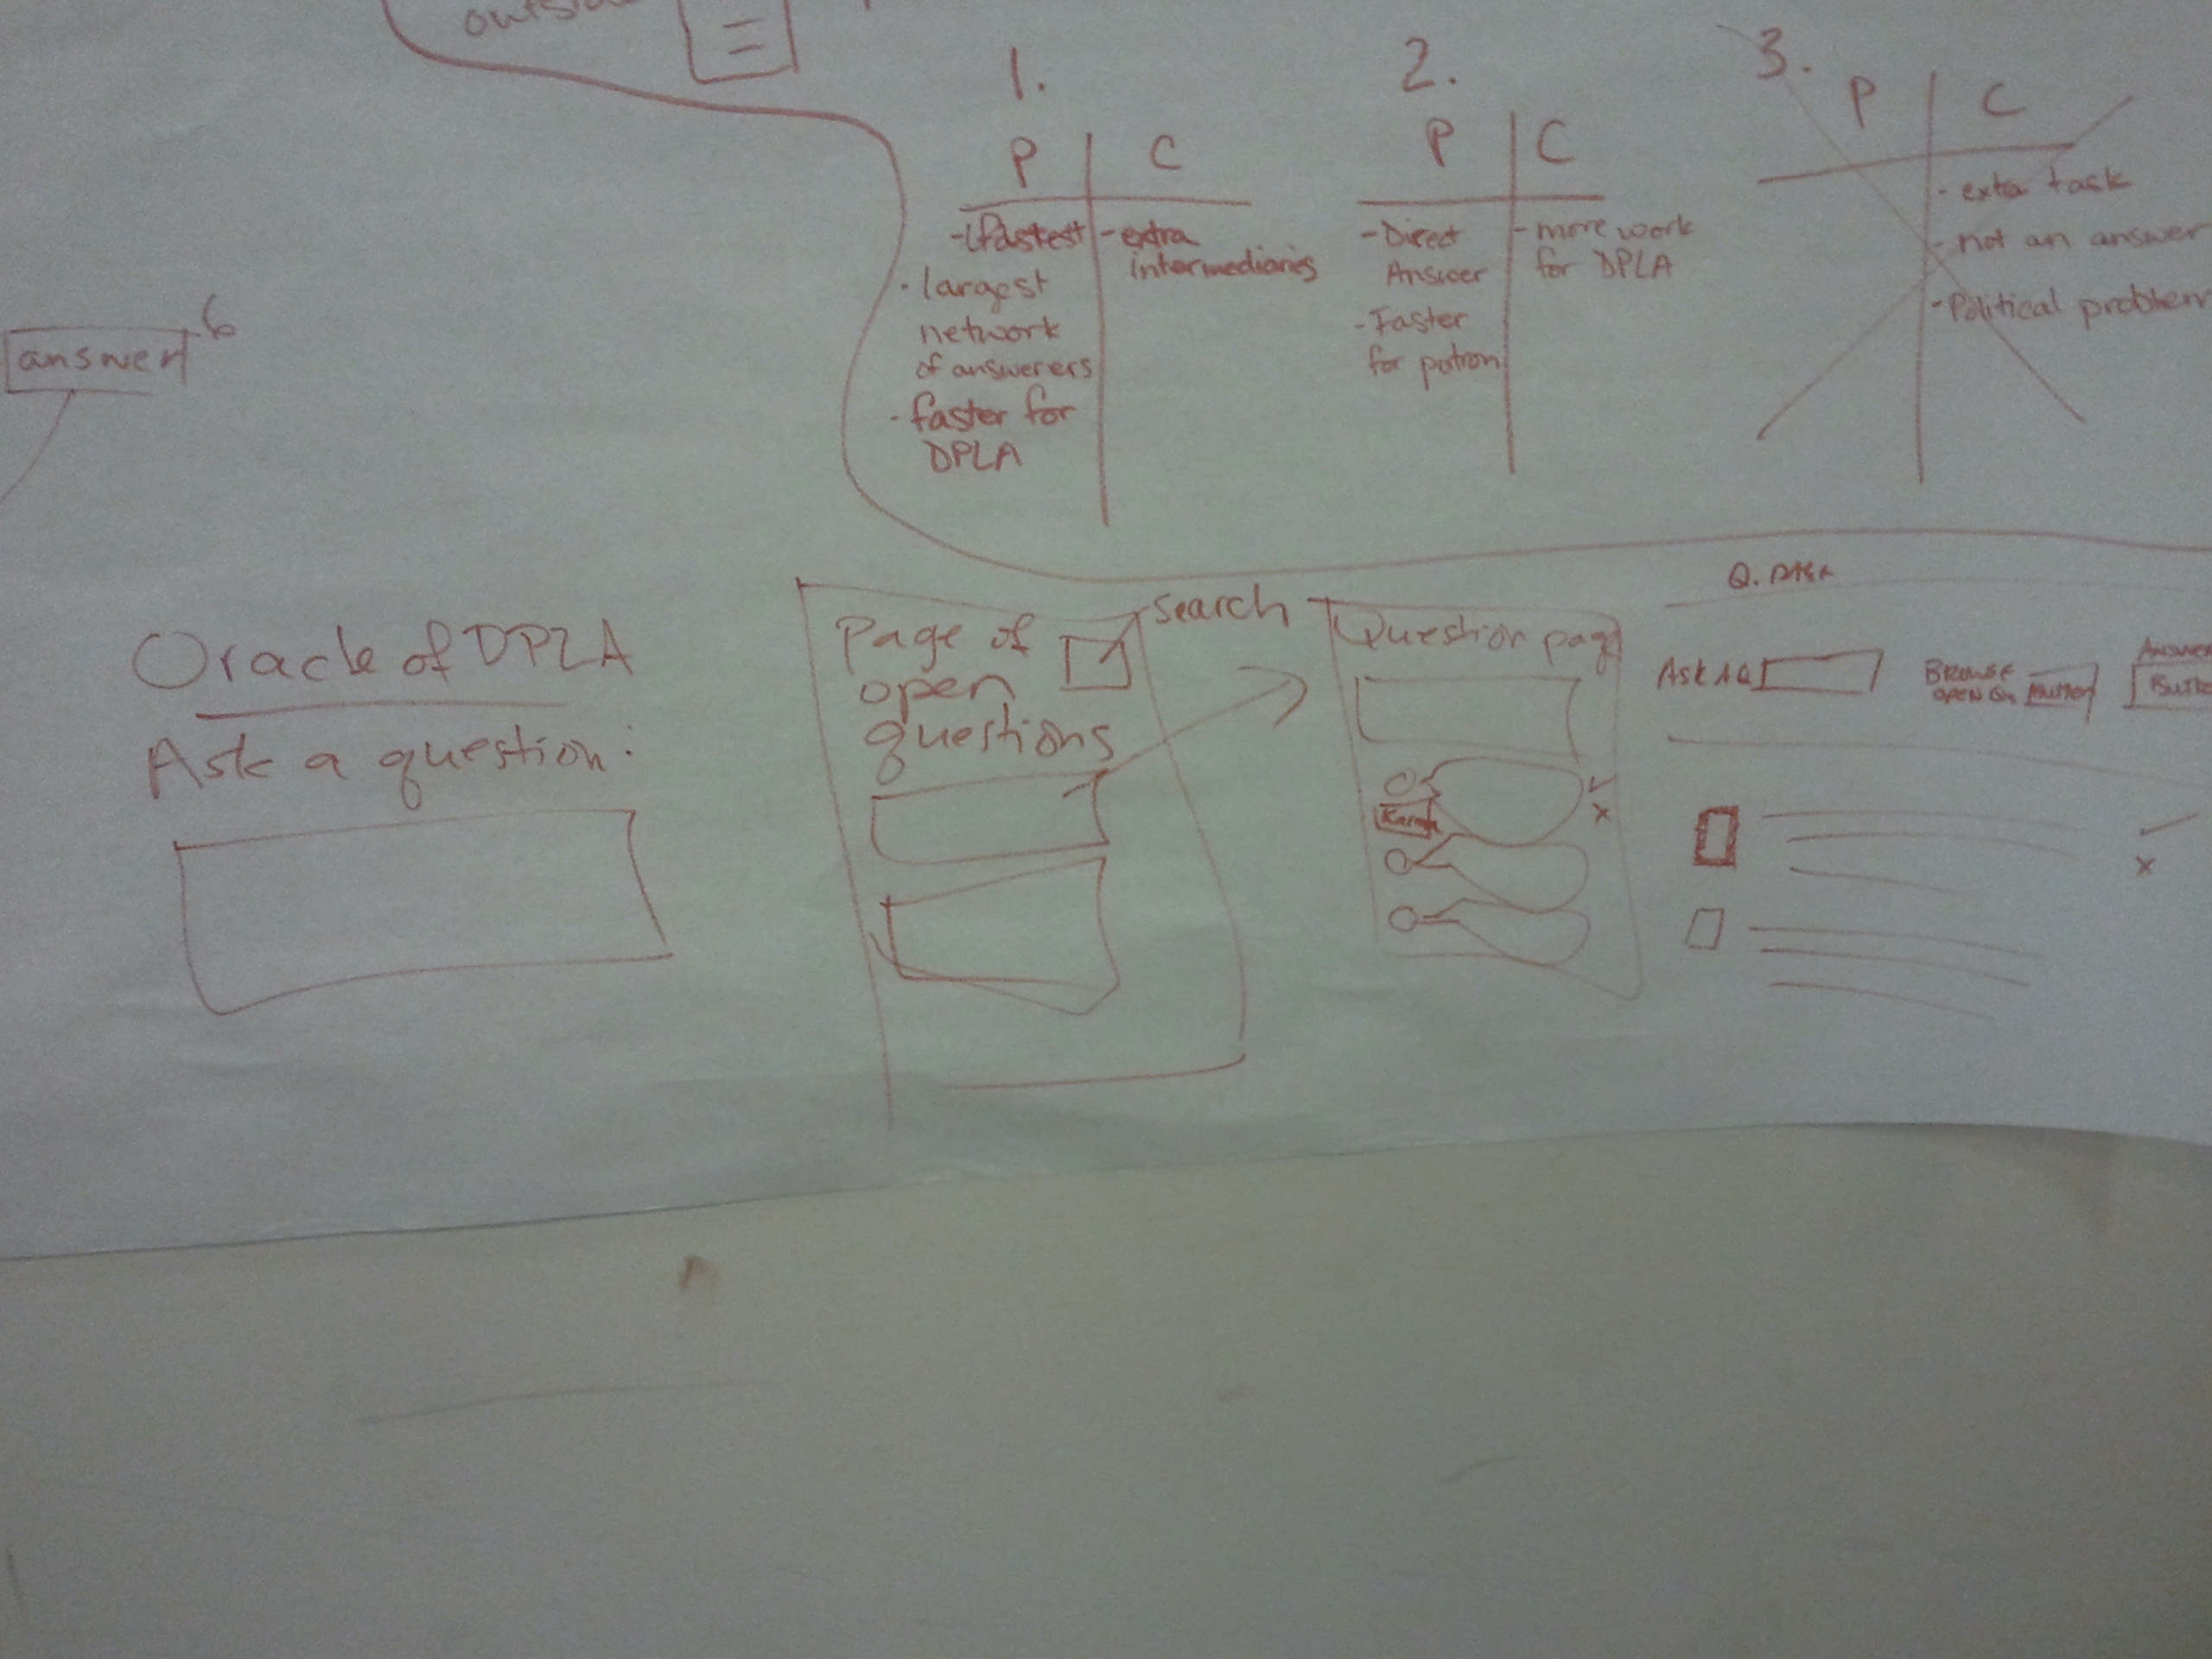 1.
P
C
- fastest
· largest
network
of answerers
· faster for
DPLA
- extra
intermediaries
2.
P
C
- Direct
Answer
- Faster
for patron
- more work
for DPLA
3.
P
C
- extra task
- not an answer
- Political problem
answer
6
Oracle of DPLA
Ask a question:
Page of
open
questions
search
Question page
Karma
Ask A Q
Browse
open Qs
Button
Answer